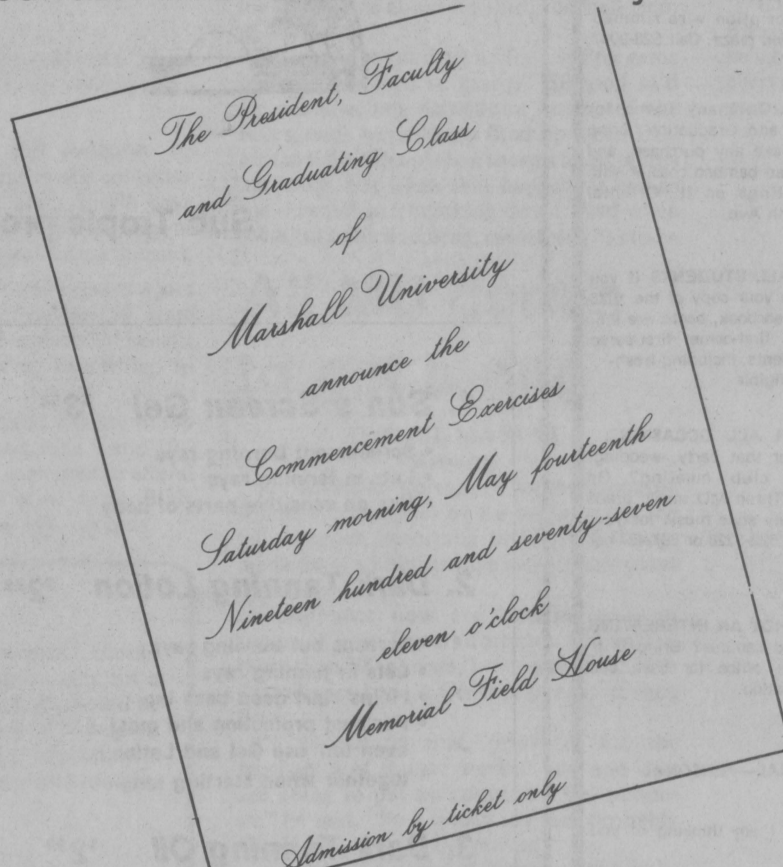 The President, Faculty
and Graduating Class
of
Marshall University
announce the
Commencement Exercises
Saturday morning, May fourteenth
Nineteen hundred and seventy-seven
eleven o'clock
Memorial Field House
Admission by ticket only